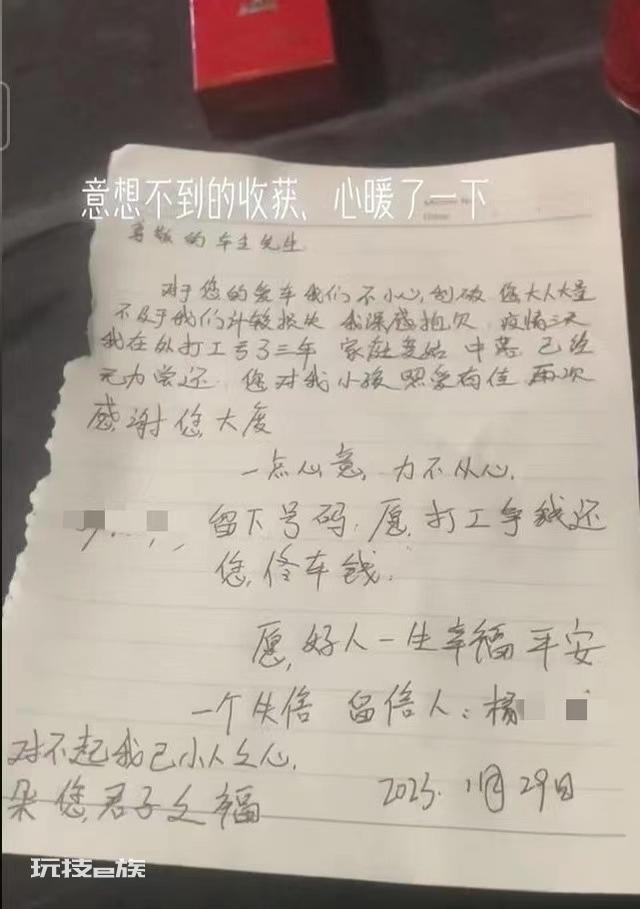 意想不到的收获、心暖了一下
尊敬的车主先生
对于您的爱车我们不小心,刮破 您大人大量
不及于我们计较损失 我深感抱欠 疫情三天
我在外打工亏了三年 家庭 中落 已经
无力尝还 您对我小孩照爱有佳 再次
感谢您大度
一点心意,力不从心.
留下号码.愿,打工争钱还
您,修车钱.
愿,好人一生幸福平安
一个失信 留信人:杨
对不起我已小人之心.
朵您,君子之福
2023. 11月29日
玩技e族